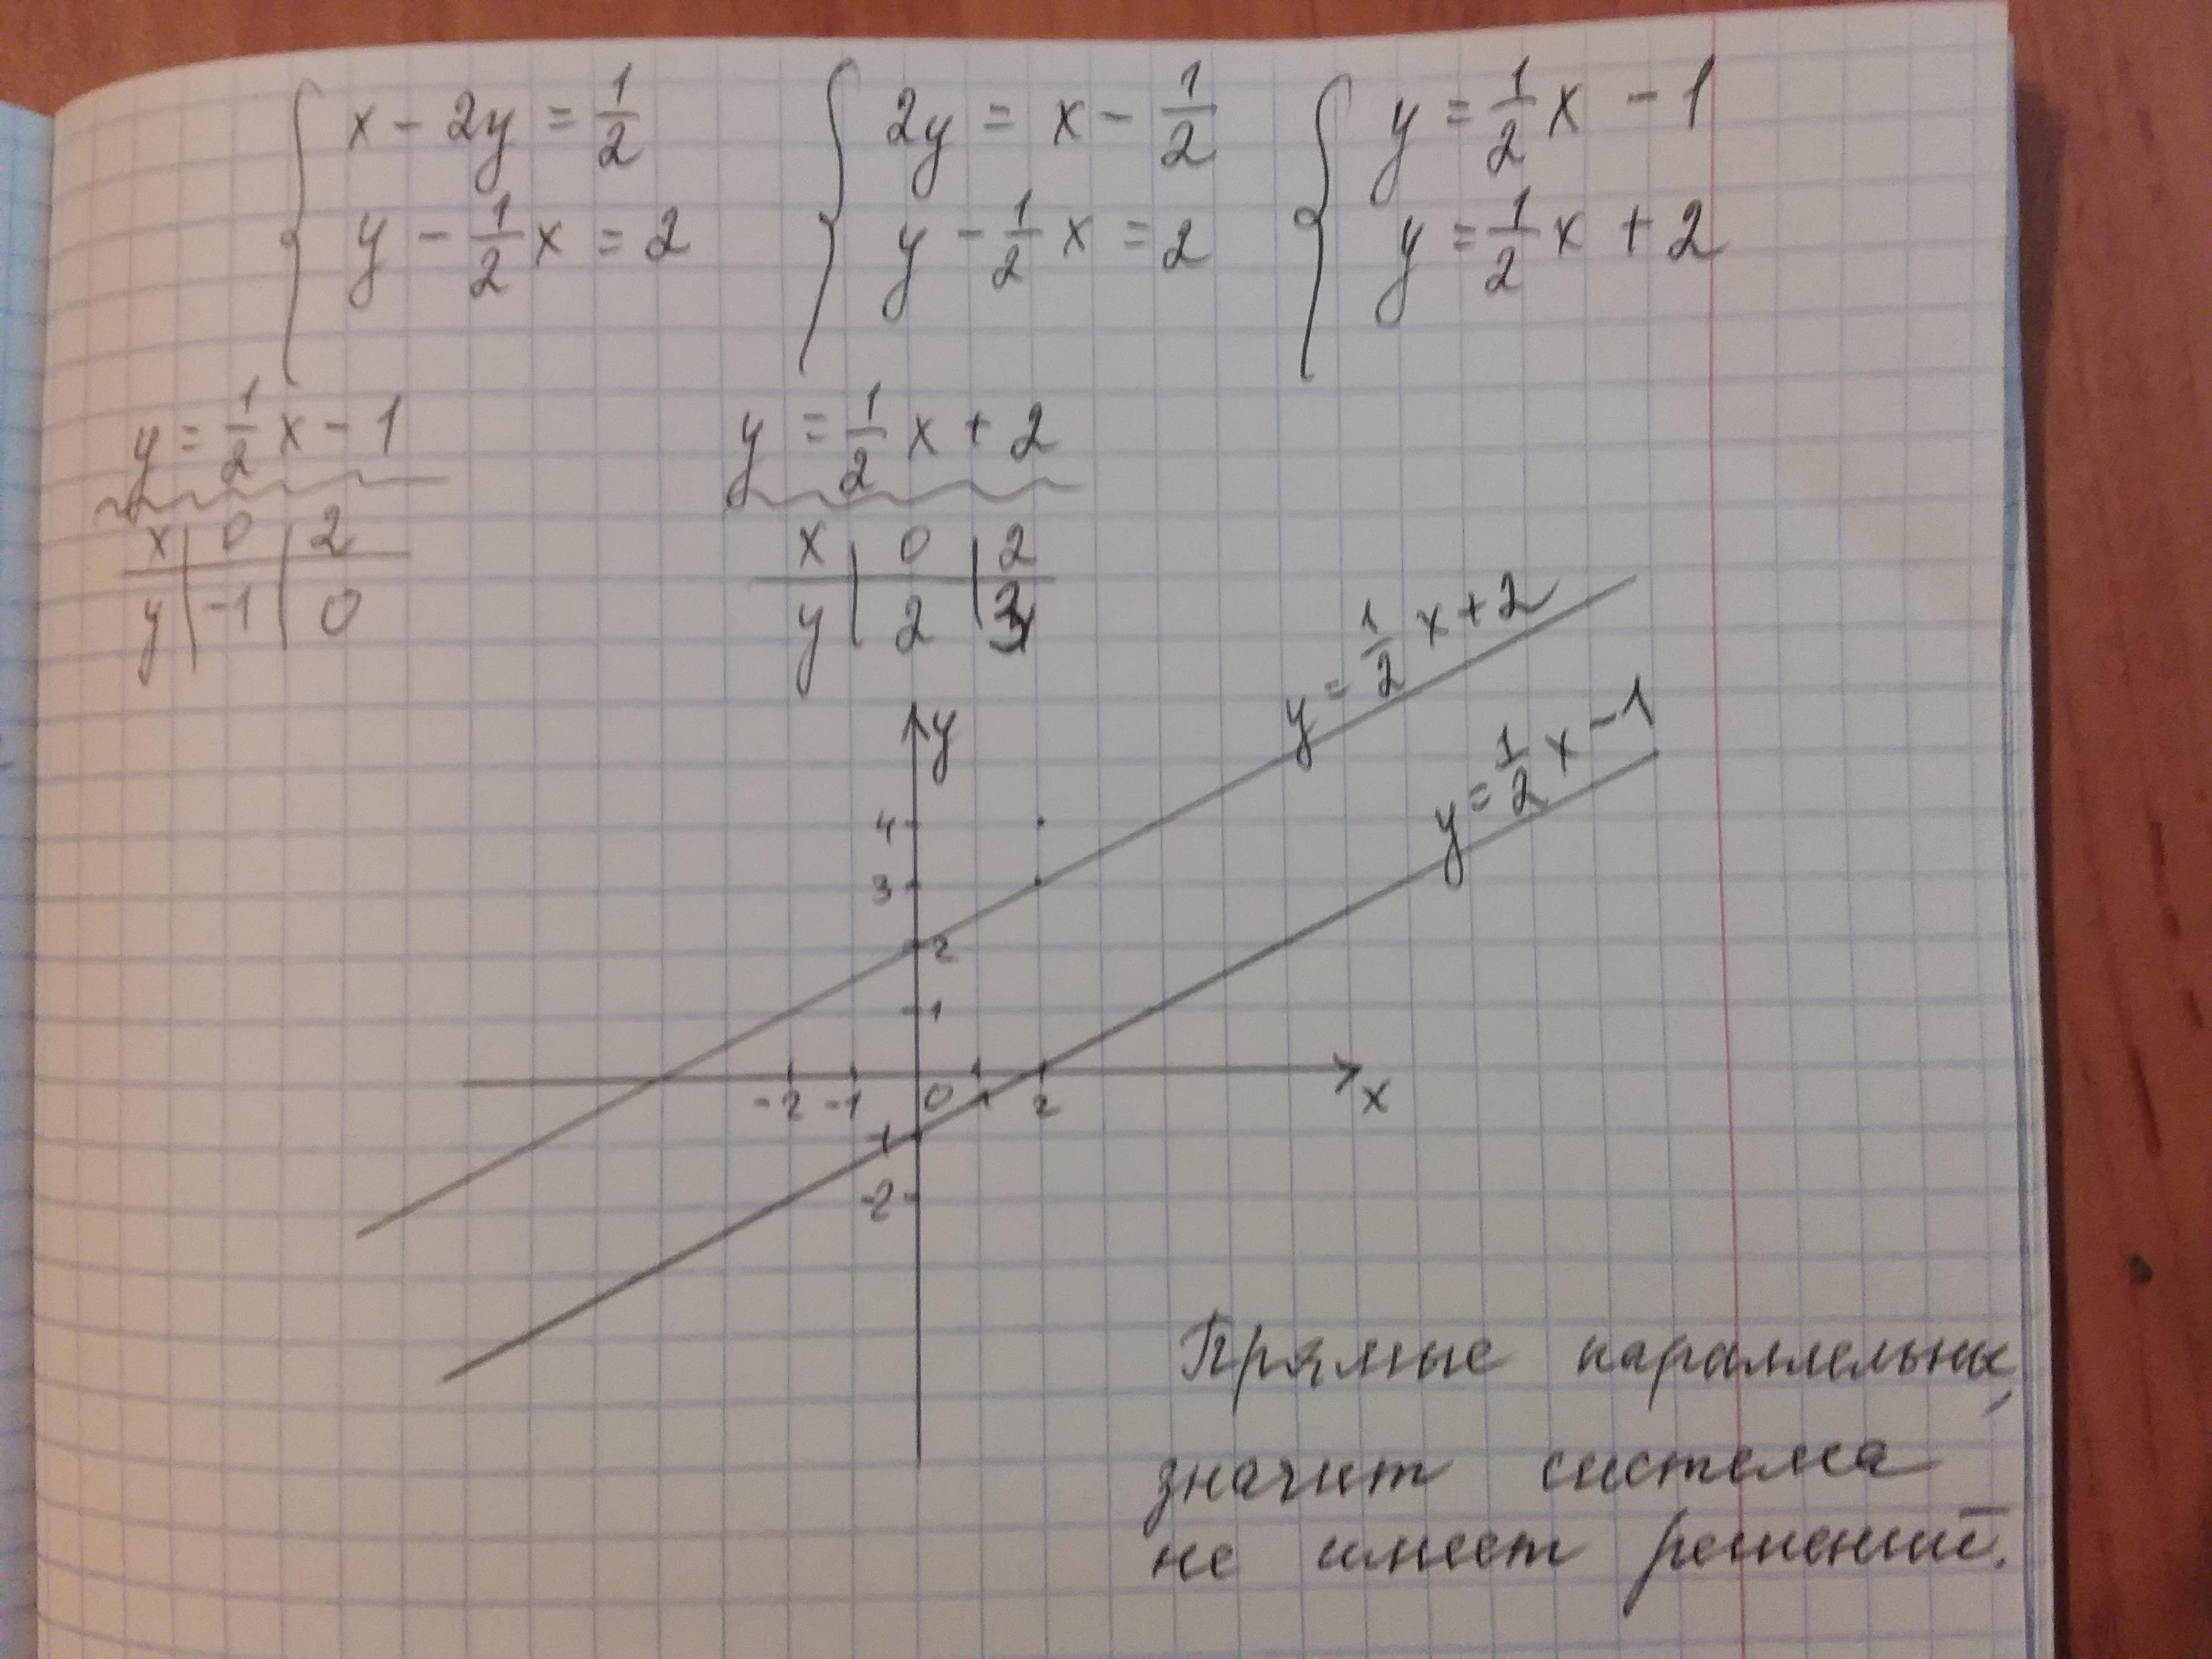 x - 2y = 1/2 2y = x - 1/2 y = 1/2 x - 1
y - 1/2 x = 2 y - 1/2 x = 2 y = 1/2 x + 2
y = 1/2 x - 1 y = 1/2 x + 2
x 0 2 x 0 2
y -1 0 y 2 3
y = 1/2 x + 2
y = 1/2 x - 1
y
4
3
2
1
-2 -1 0 1 2 x
-1
-2
Прямые параллельны,
значит система
не имеет решений.